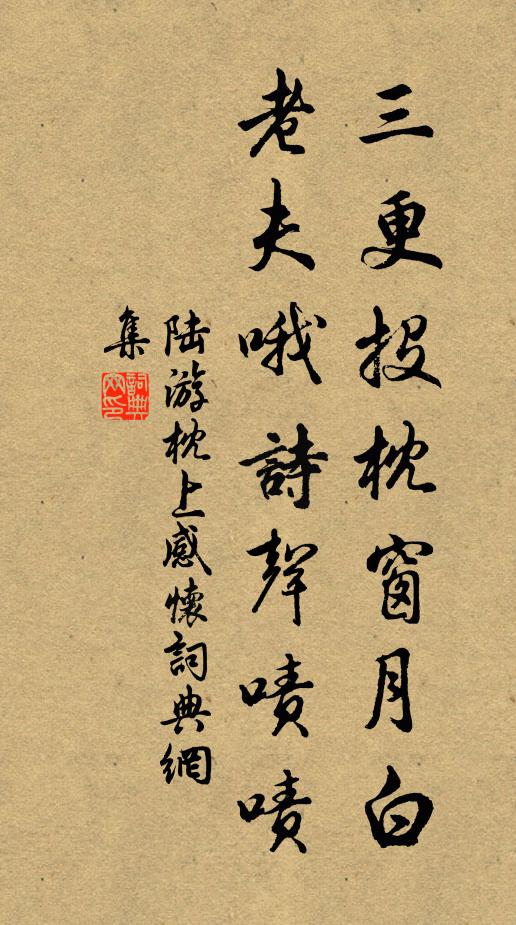 三更投枕窗月白
老夫哦詩聲嘖嘖
陆游枕上感懷詞典網
集
詞典網印